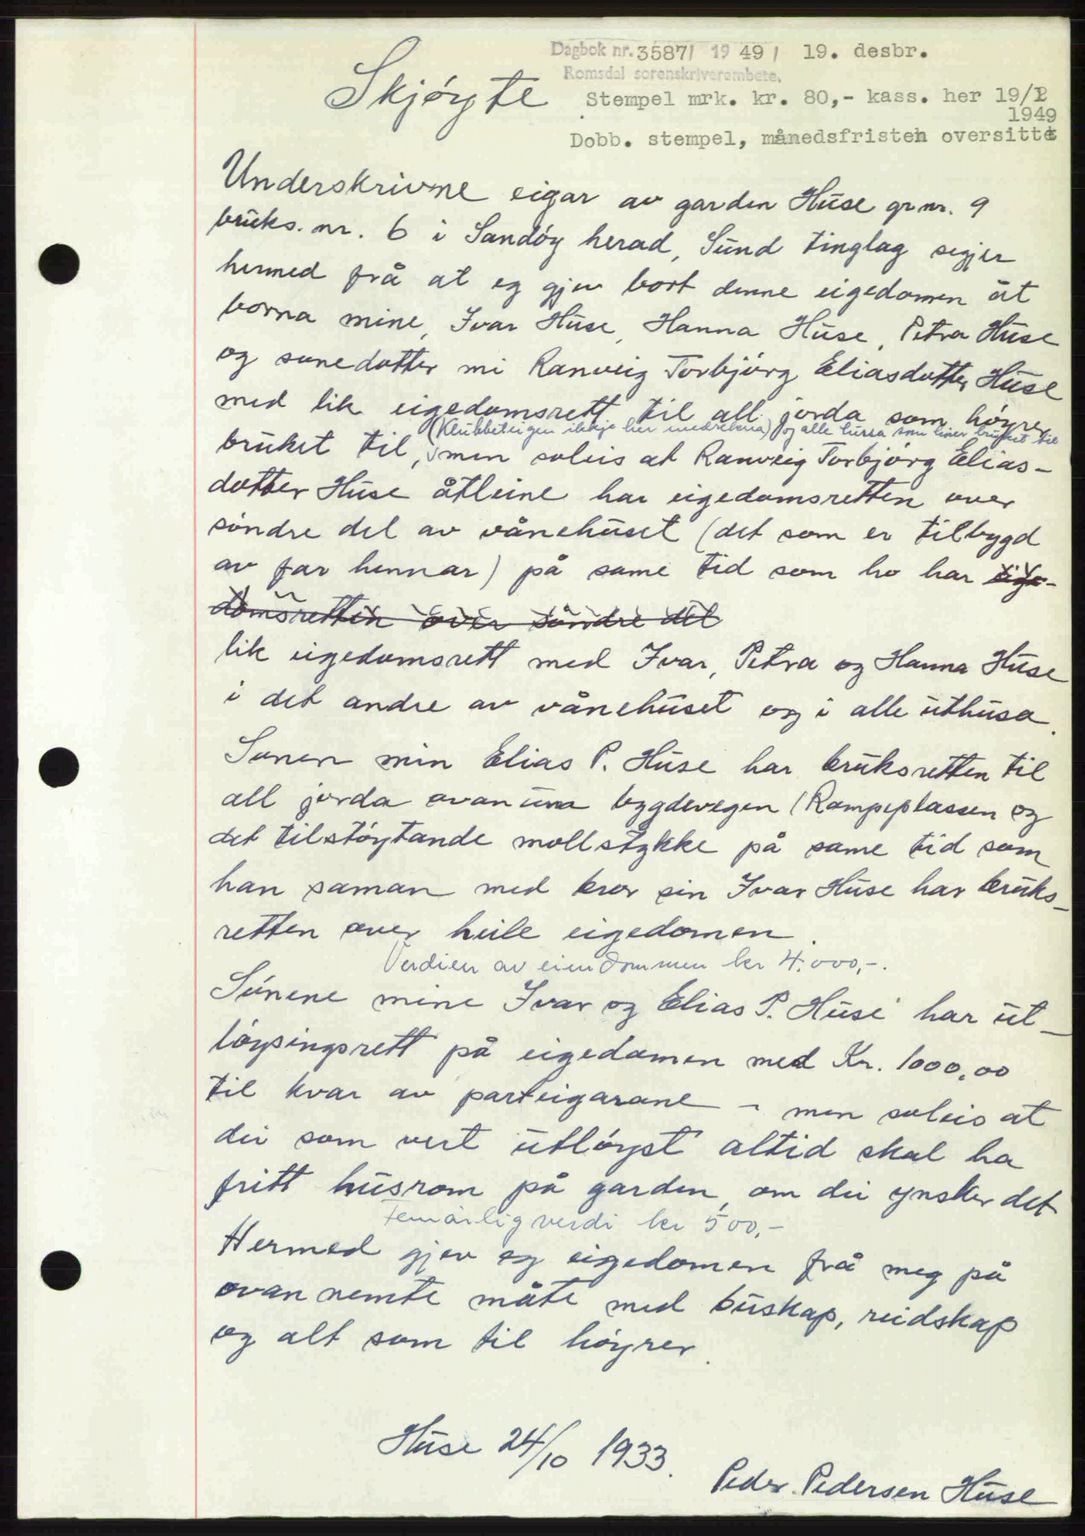 Dagbok nr. 3587/ 1949/ 19. desbr.
Romsdal sorenskriverembete.
Skjøyte
Stempel mrk. kr. 80,- kass. her 19/12
1949
Dobb. stempel, månedsfristen oversittet
Underskrivne eigar av garden Húse grnr. 9
brúks. nr. 6 i Sandøy herad, Súnd tinglag segjer
hermed frå at eg gjev bort denne eigedomen åt
borna mine, Ivar Húse, Hanna Húse, Petra Húse
og sonedotter mi Ranveig Torbjørg Eliasdotter Húse
med lik eigedomsrett til all jorda som høyrer
(Klubbeteigen ikkje her medrekna) og alle húsa som høirer brúket til
brúket til, men soleis at Ranveig Torbjørg Elias-
dotter Húse åtleine har eigedomsretten over
søndre del av vånehúset (det som er tilbygd
av far hennar) på same tid som ho har eige-
domsretten over søndre del
lik eigedomsrett med Ivar, Petra og Hanna Húse
i det andre av vånehúset og i alle úthúsa.
Sonen min Elias P. Húse har brúksretten til
all jorda ovanum bygdevegen (Rampeplassen og
det tilstøytande mollstykke på same tid som
han saman med bror sin Ivar Húse har brúks-
retten over heile eigedomen.
Verdien av eiendommen kr 4.000,-.
Súnene mine Ivar og Elias P. Húse har út-
løysingsrett på eigedomen med Kr. 1000,00
til kvar av parteigarane - men soleis at
dei som vert útløyst altid skal ha
fritt húsrom på garden, om dei ynsker det
Femårlig verdi kr 500,-
Hermed gjev eg eigedomen frå meg på
ovan nemte måte med búskap, reidskap
og alt som til høyrer.
Húse 24/10 1933.
Peder Pedersen Húse